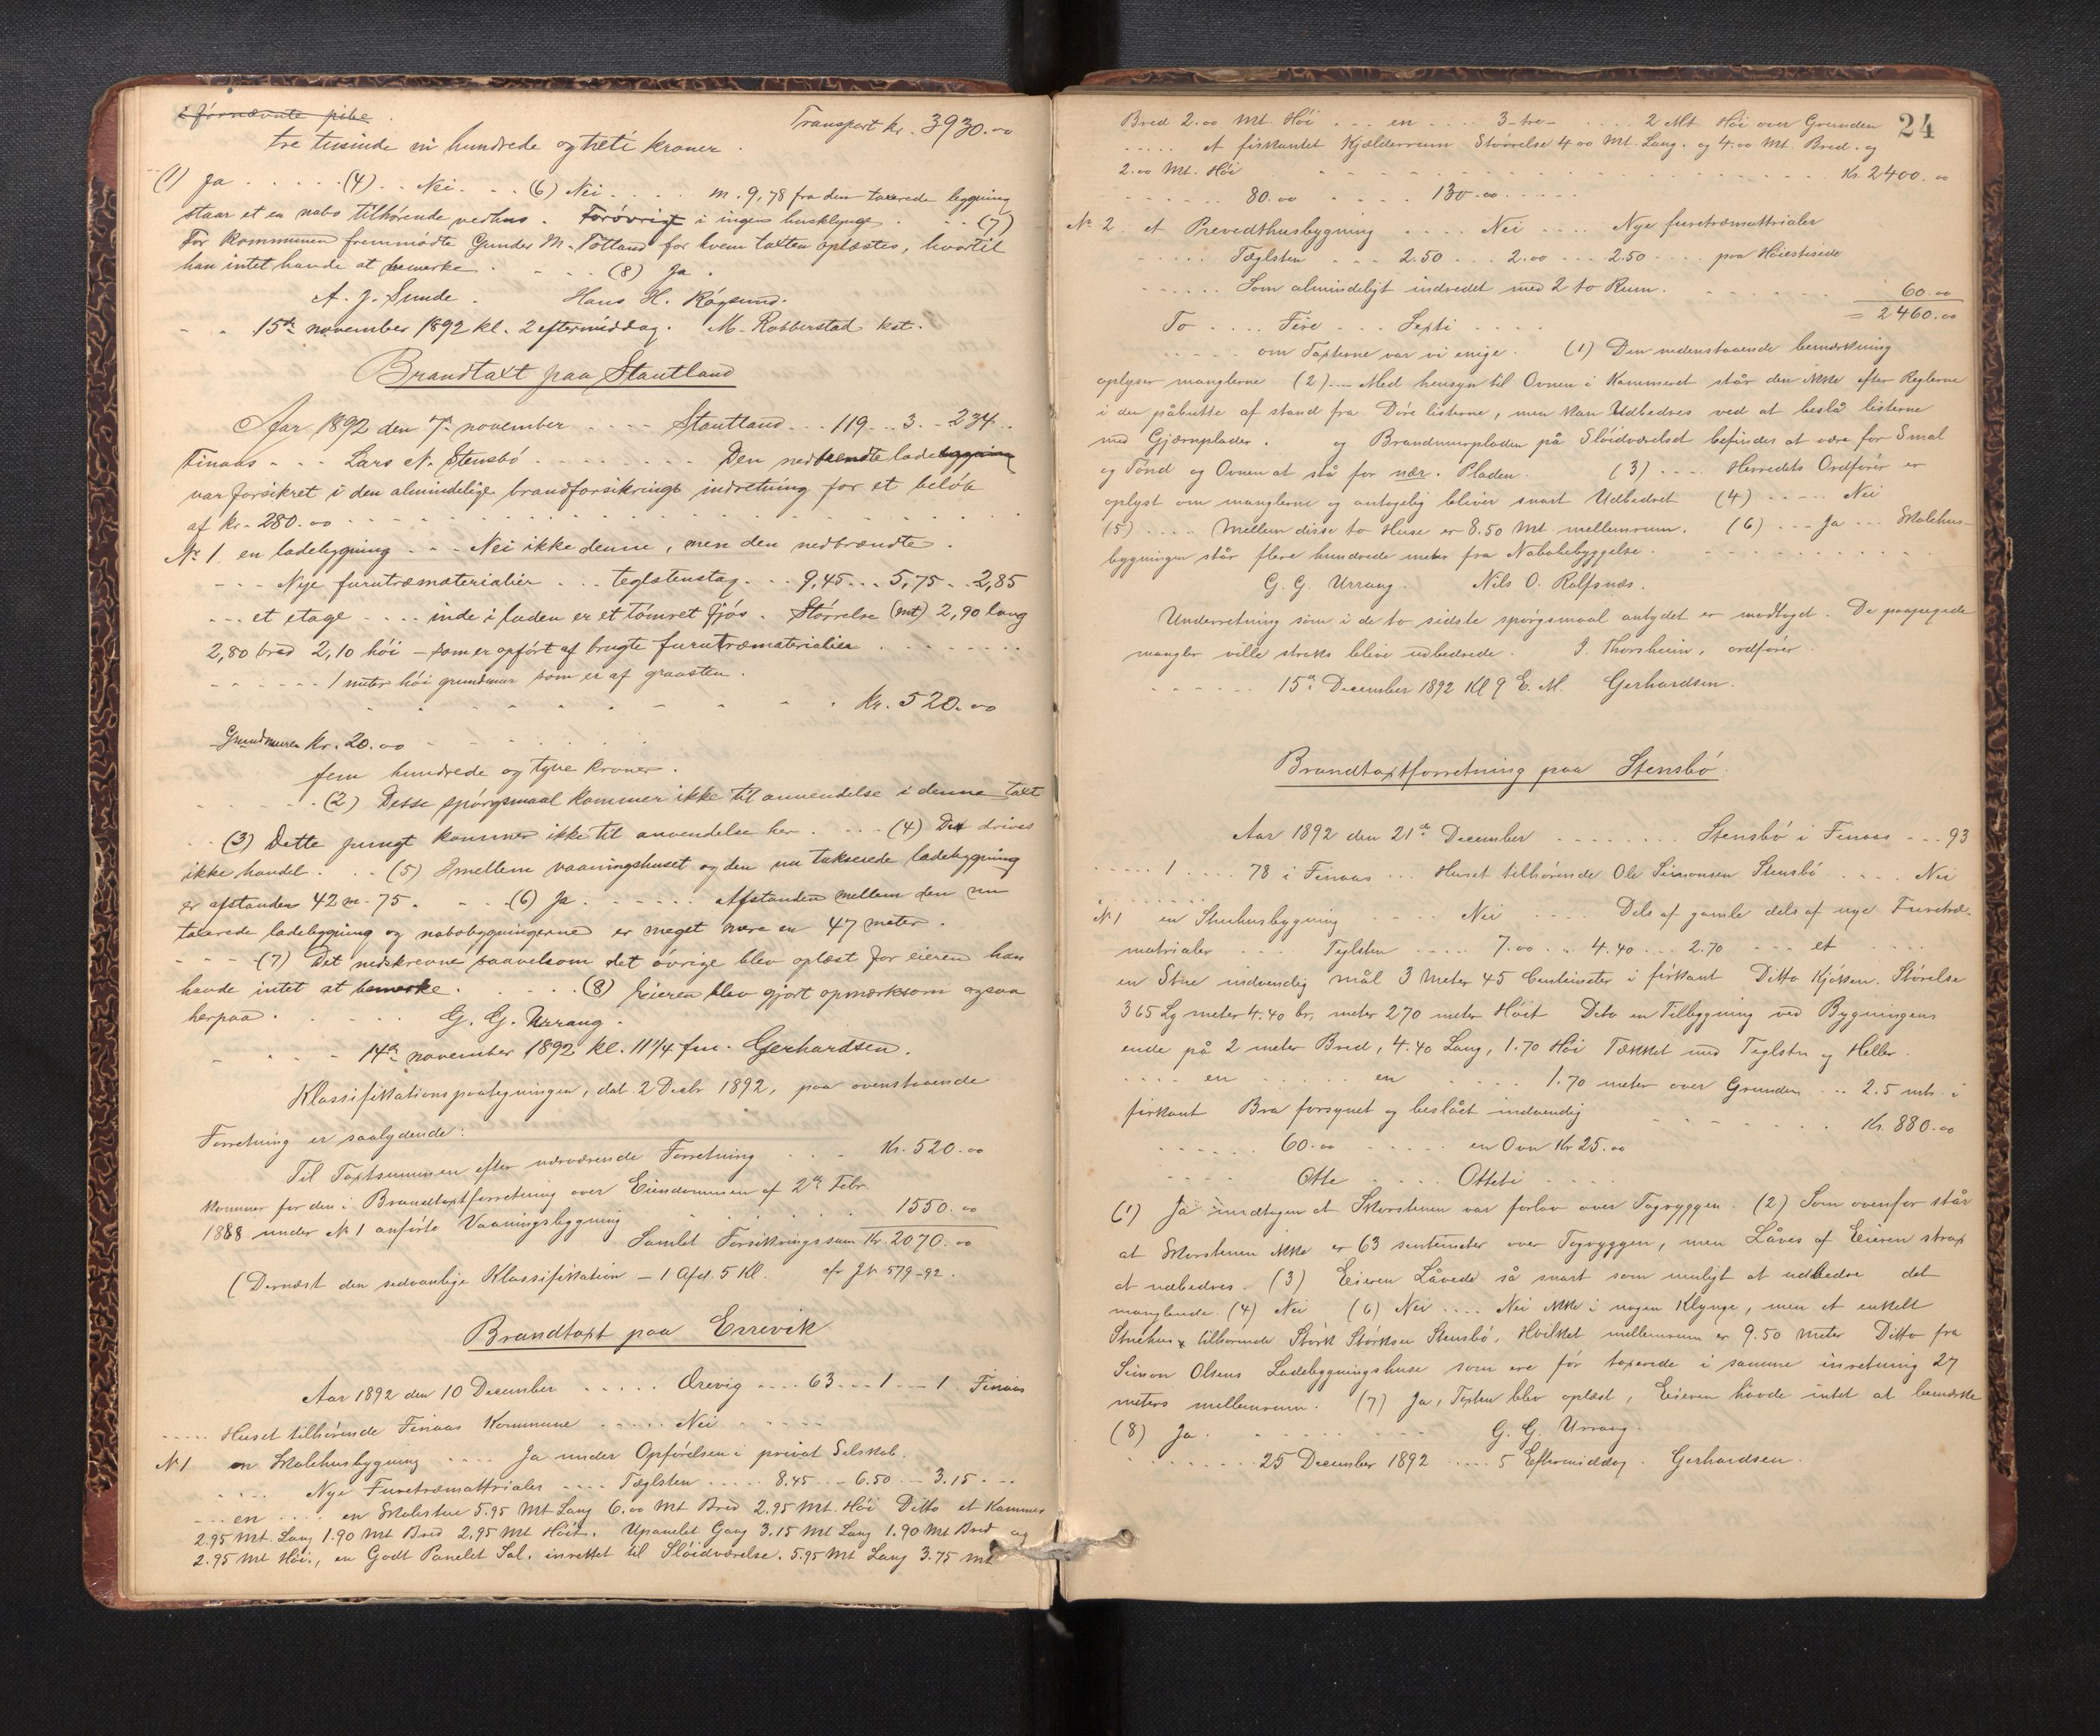 i førnævnte pibe. Transport kr. 3930.00
tre tusinde ni hundrede og treti kroner.
(1) Ja . . . . . (4) . . Nei . . . (6) Nei . . . . m. 9,78 fra den taxerede bygning
staar et en nabo tilhørende vedhus. Forøvrigt i ingen husklynge . . . (7)
For kommunen fremmødte Gunder M. Totland for hvem taxten oplæstes, hvortil
han intet havde at bemerke . - - - (8) Ja .
A. J. Sunde . Hans H. Røgsund.
- - . 15de november 1892 kl. 2 eftermiddag. M. Robberstad kst.
Brandtaxt paa Stautland
Aar 1892 den 7de november - - - - Stautland . . . 119 . . . 3 . . - 234 . .
Finaas - - . Lars N. Stensbø . - - - - - - - Den nedbrendte ladebygning
var forsikret i den almindelige brandforsikrings indretning for et beløb
af kr. 280.00 - - - - - - - - -
Nr 1. en ladebygning - - - Nei ikke denne, men den nedbrændte .
- - - Nye furutræmaterialier . . . teglstenstag . . . 9,45 . . . 5,75 . . 2,85
- - - et etage . . . . inde i laden er et tømret fjøs . Størrelse (mt) 2,90 lang
2,80 bred 2,10 høi - som er opført af brugte furutræmaterialier . . . . . .
- - - - - - 1 meter høi grundmur som er af graasten .
kr. 520.00
Grundmuren kr. 20.00 - - - - -
fem hundrede og tyve kroner .
- - - - - . (2) Disse spørgsmaal kommer ikke til anvendelse i denne taxt
. . (3) Dette punkt kommer ikke til anvendelse her . . . . (4) Det drives
ikke handel . . . (5) Imellem vaaningshuset og den nu takserede ladebygning
er afstanden 42 m. 75 . - - . (6) Ja . - - - - - Afstanden mellem den nu
taxerede ladebygning og nabobygningerne er meget mere en 47 meter .
- - - (7) Det nedskrevne saavelsom det øvrige blev oplæst for eieren han
havde intet at bemerke . - - - - . (8) Eieren blev gjort opmærksom ogsaa
herpaa . - - - - G. G. Urrang .
- - - - 14de november 1892 kl. 11 1/4 fm. Gerhardsen .
Klassifikationspaategningen, dat. 2 Decbr 1892, paa ovenstaaende
Forretning er saalydende:
Til Taxtsummen efter nærværende Forretning - - - Kr. 520.00
kommer for den i Brandtaxtforretning over Eiendommen af 2de Febr.
1888 under No 1 anførte Vaaningsbygning . . . . . 1550.00
Samlet Forsikringssum Kr. 2070.00
(Dernæst den sedvanlige Klassifikation - 1 Afd. 5 Kl. cfr Jr. 579-92.
Brandtaxt paa Errevik
Aar 1892 den 10 December . . . . . Ørevig . . . . 63 . . . 1 . . - 1 . Finaas
. . . . . Huset tilhørende Finaas Kommune . . . . . Nei - - - - -
No 1 en Skolehusbygning . . . . Ja under Opførelsen i privat Selskab.
. . . . . Nye Furetræmattrialer . . . . Tæglsten . . . . 8.45 . . . 6.50 . . . 3.15 . . .
. . . en . . . . en Skolestue 5.95 Mt Lang 6.00 Mt Bred 2.95 Mt. Høi Ditto et Kammer
2.95 Mt. Lang 1.90 Mt Bred 2.95 Mt Høit. Upanelet Gang 3.15 Mt Lang 1.90 Mt Bred og
2.95 Mt Høi., en Godt Panelet Sal. inrettet til Sløidværelse. 5.95 Mt Lang 3.75 Mt
24
Bred 2.00 Mt. Høi . . . en . . . . 3 - tre - . . . . 2 Mt Høi over Grunden
. . . . . et firkantet Kjælderrum Størrelse 4.00 Mt. Lang. og 4.00 Mt. Bred. og
2.00 Mt. Høi . . . . . . . . . . Kr. 2400.00
- - - - - - 80.00 - - - - - 130.00 . - - - -
No. 2. et Prevedthusbygning . . . . Nei . . . . Nye furetræmattrialer
. . . . . Tæglsten . . . 2.50 . . . 2.00 . . . 2.50 . . . . paa Høiestiside
. . . . . . Som almindeligt indredet med 2 to Rum . . . . . . . 60.00
= 2460.00
To . . . . Fire . . . Sexti . . . .
. . . . . om Taxterne var vi enige . (1) Den nedenstaaende bemærkning
oplyser manglerne (2) . . . . Med hensyn til Ovnen i Kammeret står den ikke efter Reglerne
i den påbutte af stand fra Døre listerne, men kan Udbedres ved at beslå listerne
med Gjærnplader . og Brandmurpladen på Sløidværelset befindes at være for Smal
og Tønd og Ovnen at stå for nær . Pladen . (3) . . . . Herredets Ordfører er
oplyst om manglerne og antagelig bliver snart Udbedret (4) . . . . . Nei
(5) . . . . Mellem disse to Huse er 8.50 Mt. mellemrum . (6) . . . Ja . . . Skolehus-
bygningen står flere hundrede meter fra Nabobebyggelse . . . . . . . . . .
G. G. Urrang . Nils O. Rolfsnæs .
Underretning som i de to sidste spørgsmaal antydet er modtaget . De paapegede
mangler ville straks blive udbedrede . J. Thorsheim, ordfører .
. . . . . . 15de December 1892 Kl 9 E. M. Gerhardsen .
Brandtaxtforretning paa Stensbø .
Aar 1892 den 21de December . . . . . . . . Stensbø i Finaas . . . 93
. . . . . 1 . . . . 78 i Finaas . . . Huset tilhørende Ole Simonsen Stensbø . . . . Nei
No 1 en Stuehusbygning . . . . Nei . . . . Dels af gamle dels af nye Furetræ-
matrialer . . . Teglsten . . . . . 7.00 . . . 4.40 . . . 2.70 . . . . et . . . .
en Stue indvendig mål 3 Meter 45 Centimeter i firkant Ditto Kjøkken. Størelse
365 Lg meter 4.40 br, meter 270 meter Høit Dito en Tilbygning ved Bygningens
ende på 2 meter Bred, 4.40 Lang, 1.70 Høi Tækket med Teglstn og Heller .
. . . . en . . . . . . en . . . . . 1.70 meter over Grunden . . . 2.5 mtr. i
firkant Bra forsynet og beslået indvendig . . . . . . Kr. 880.00
. . . . . . 60.00 . . . . . en Ovn Kr 25.00
. . . . Otte . . . . . Otteti . . . . .
(1) Ja undtagen at Skorstenen var forlav over Tagryggen . (2) Som ovenfor står
at Skorstenen ikke er 63 sentimeter over Tagryggen, men Låves af Eieren strax
at udbedres . (3) Eieren Låvede så snart som muligt at udbedre det
manglende. (4) Nei (6) Nei . . . . Nei ikke i nogen Klynge, men et enkelt
Stuehus tilhørende Størk Størksen Stensbø, Hvilket mellemrum er 9.50 Meter Ditto fra
Simon Olsens Ladebygningshuse som ere før taxerede i samme inretning 27
meters mellemrum . (7) Ja, Taxten blev oplæst, Eieren håvde intet at bemærke
(8) Ja . . . . . . . . . G. G. Urrang .
. . . . . . . . 25 December 1892 . . . . . 5 Eftermiddag . Gerhardsen .